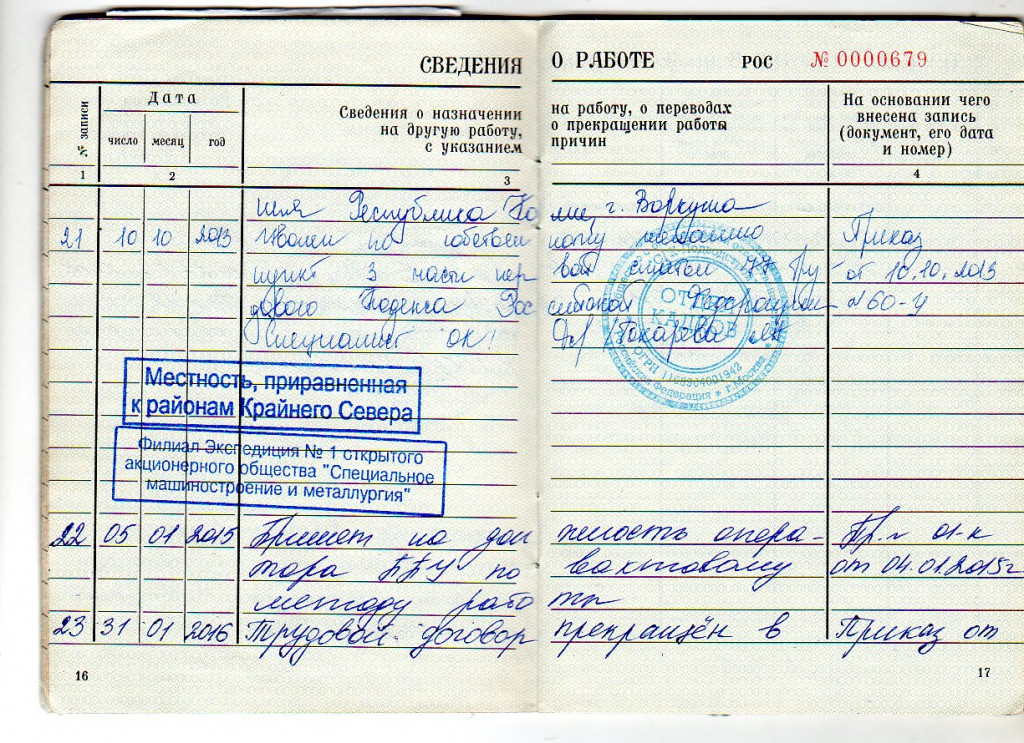 СВЕДЕНИЯ О РАБОТЕ РОС № 0000679
№ записи
Дата
число месяц год
Сведения о назначении на работу, о переводах
на другую работу, о прекращении работы
с указанием причин
На основании чего
внесена запись
(документ, его дата
и номер)
1 2 3 4
Республика Коми г. Воркута
21 10 10 2013 Уволен по собственному желанию Приказ
пункт 3 части первой статьи 77 Тру от 10.10.2013
дового Кодекса Российской Федерации №60-у
Специалист ОК Токарева
ОТДЕЛ
КАДРОВ
Местность, приравненная
к районам Крайнего Севера
Филиал Экспедиция № 1 открытого
акционерного общества "Специальное
машиностроение и металлургия"
22 05 01 2015 Принят на должность опера- Пр. № 01-к
тора по вахтовому от 04.01.2015г
методу работы
23 31 01 2016 Трудовой договор прекращён в Приказ от
16 17